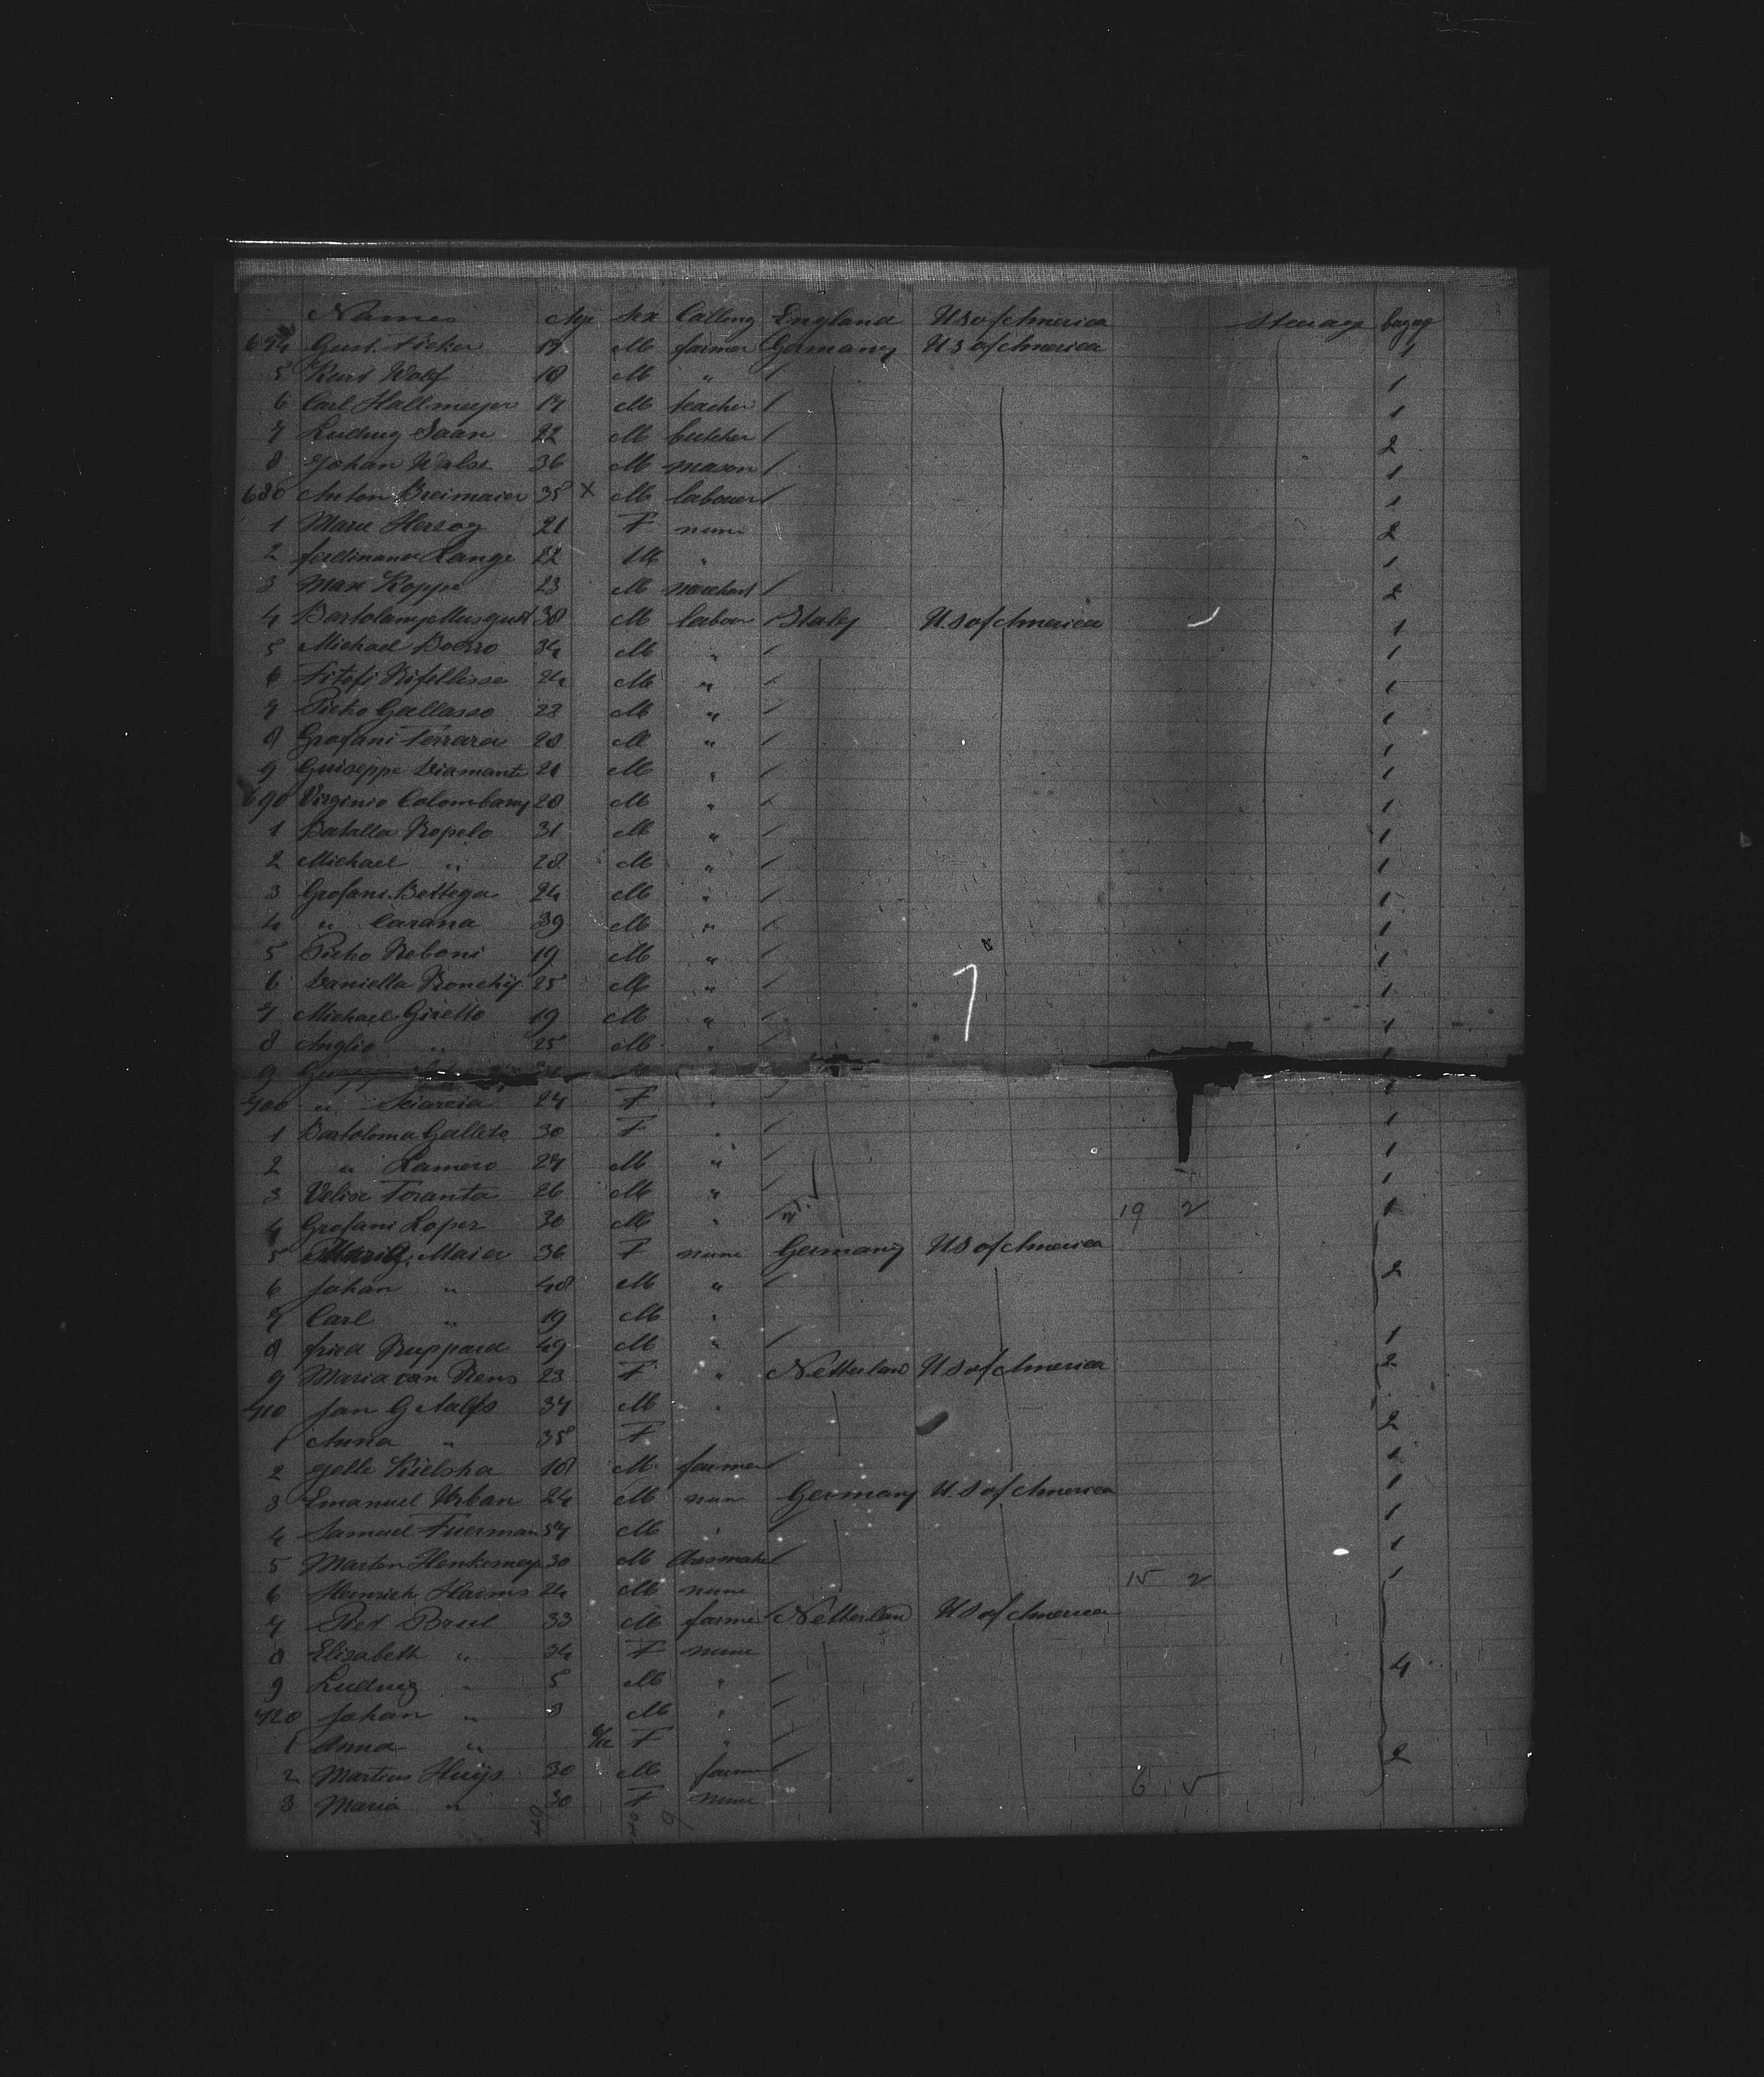 Names Age Sex Calling England U S of America Steerage bagag
Gust. Ficker 19 M farmer Germany U S of America 1
5 Kurt Wolf 18 M " / 1
6 Carl Hallmeyer 17 M teacher / 1
7 Ludwig Saan 22 M butcher / 2
8 Johan Walse 36 M mason / 1
680 Anton Breimaier 35 X M labouer / 1
1 Marie Herzog 21 F nune 2
2 ferdinand Lange 22 M " 1
3 Max Koppe 23 M / 2
4 38 M labour / Italy U.S of America 1
5 Michael 34 M " / 1
6 24 M " / 1
7 Pietro Gallasso 22 M " / 1
8 Grofani Ferrara 28 M " / 1
9 Guiseppe Diamante 21 M " / 1
690 Virginio Colombany 28 M " / 1
1 Batalla Ropelo 31 M " / 1
2 Michael " 28 M " / 1
3 Grofani Bettega 24 M " / 1
4 " Carana 39 M " / 1
5 Pietro Reboni 19 M " / 1
6 Daniella 25 M " / 1
7 Michael Gioello 19 M " / 1
8 Anglio " 25 M " / 1
9
700 " Sciarcia 27 F " / 1
1 Bartoloma Galleto 30 F " / 1
2 " Lamero 27 M " / 1
3 Velise Toranta 26 M " / 1
4 Grofani Loper 30 M " 19 2 1
5 Maria Maier 36 F nune Germany U S of America
6 Johan " 48 M " / 2
7 Carl " 19 M "
8 fried Ruppard 49 M " / 1
9 Maria van Rens 23 F " Netterland U S of America 2
710 Jan G Aalfs 37 M "
1 Anna " 35 F 2
2 Jelle Kielsha 18 M farmer / 1
3 Emanuel Urban 24 M nun Germany U.S of America 1
4 Samuel Fuerman 57 M " / 1
5 Marten Henkemeyr 30 M / 1
6 Heinrich Harms 24 M nune 15 2 1
7 Piet Bruel 33 M farme / Netterland U S of America
8 Elisabeth " 34 F nune
9 Ludwig " 5 M " / 4
720 Johan " 3 M " /
1 Anna " F " /
2 Martius Huijs 30 M farm / 2
3 Maria " 30 F nune 6